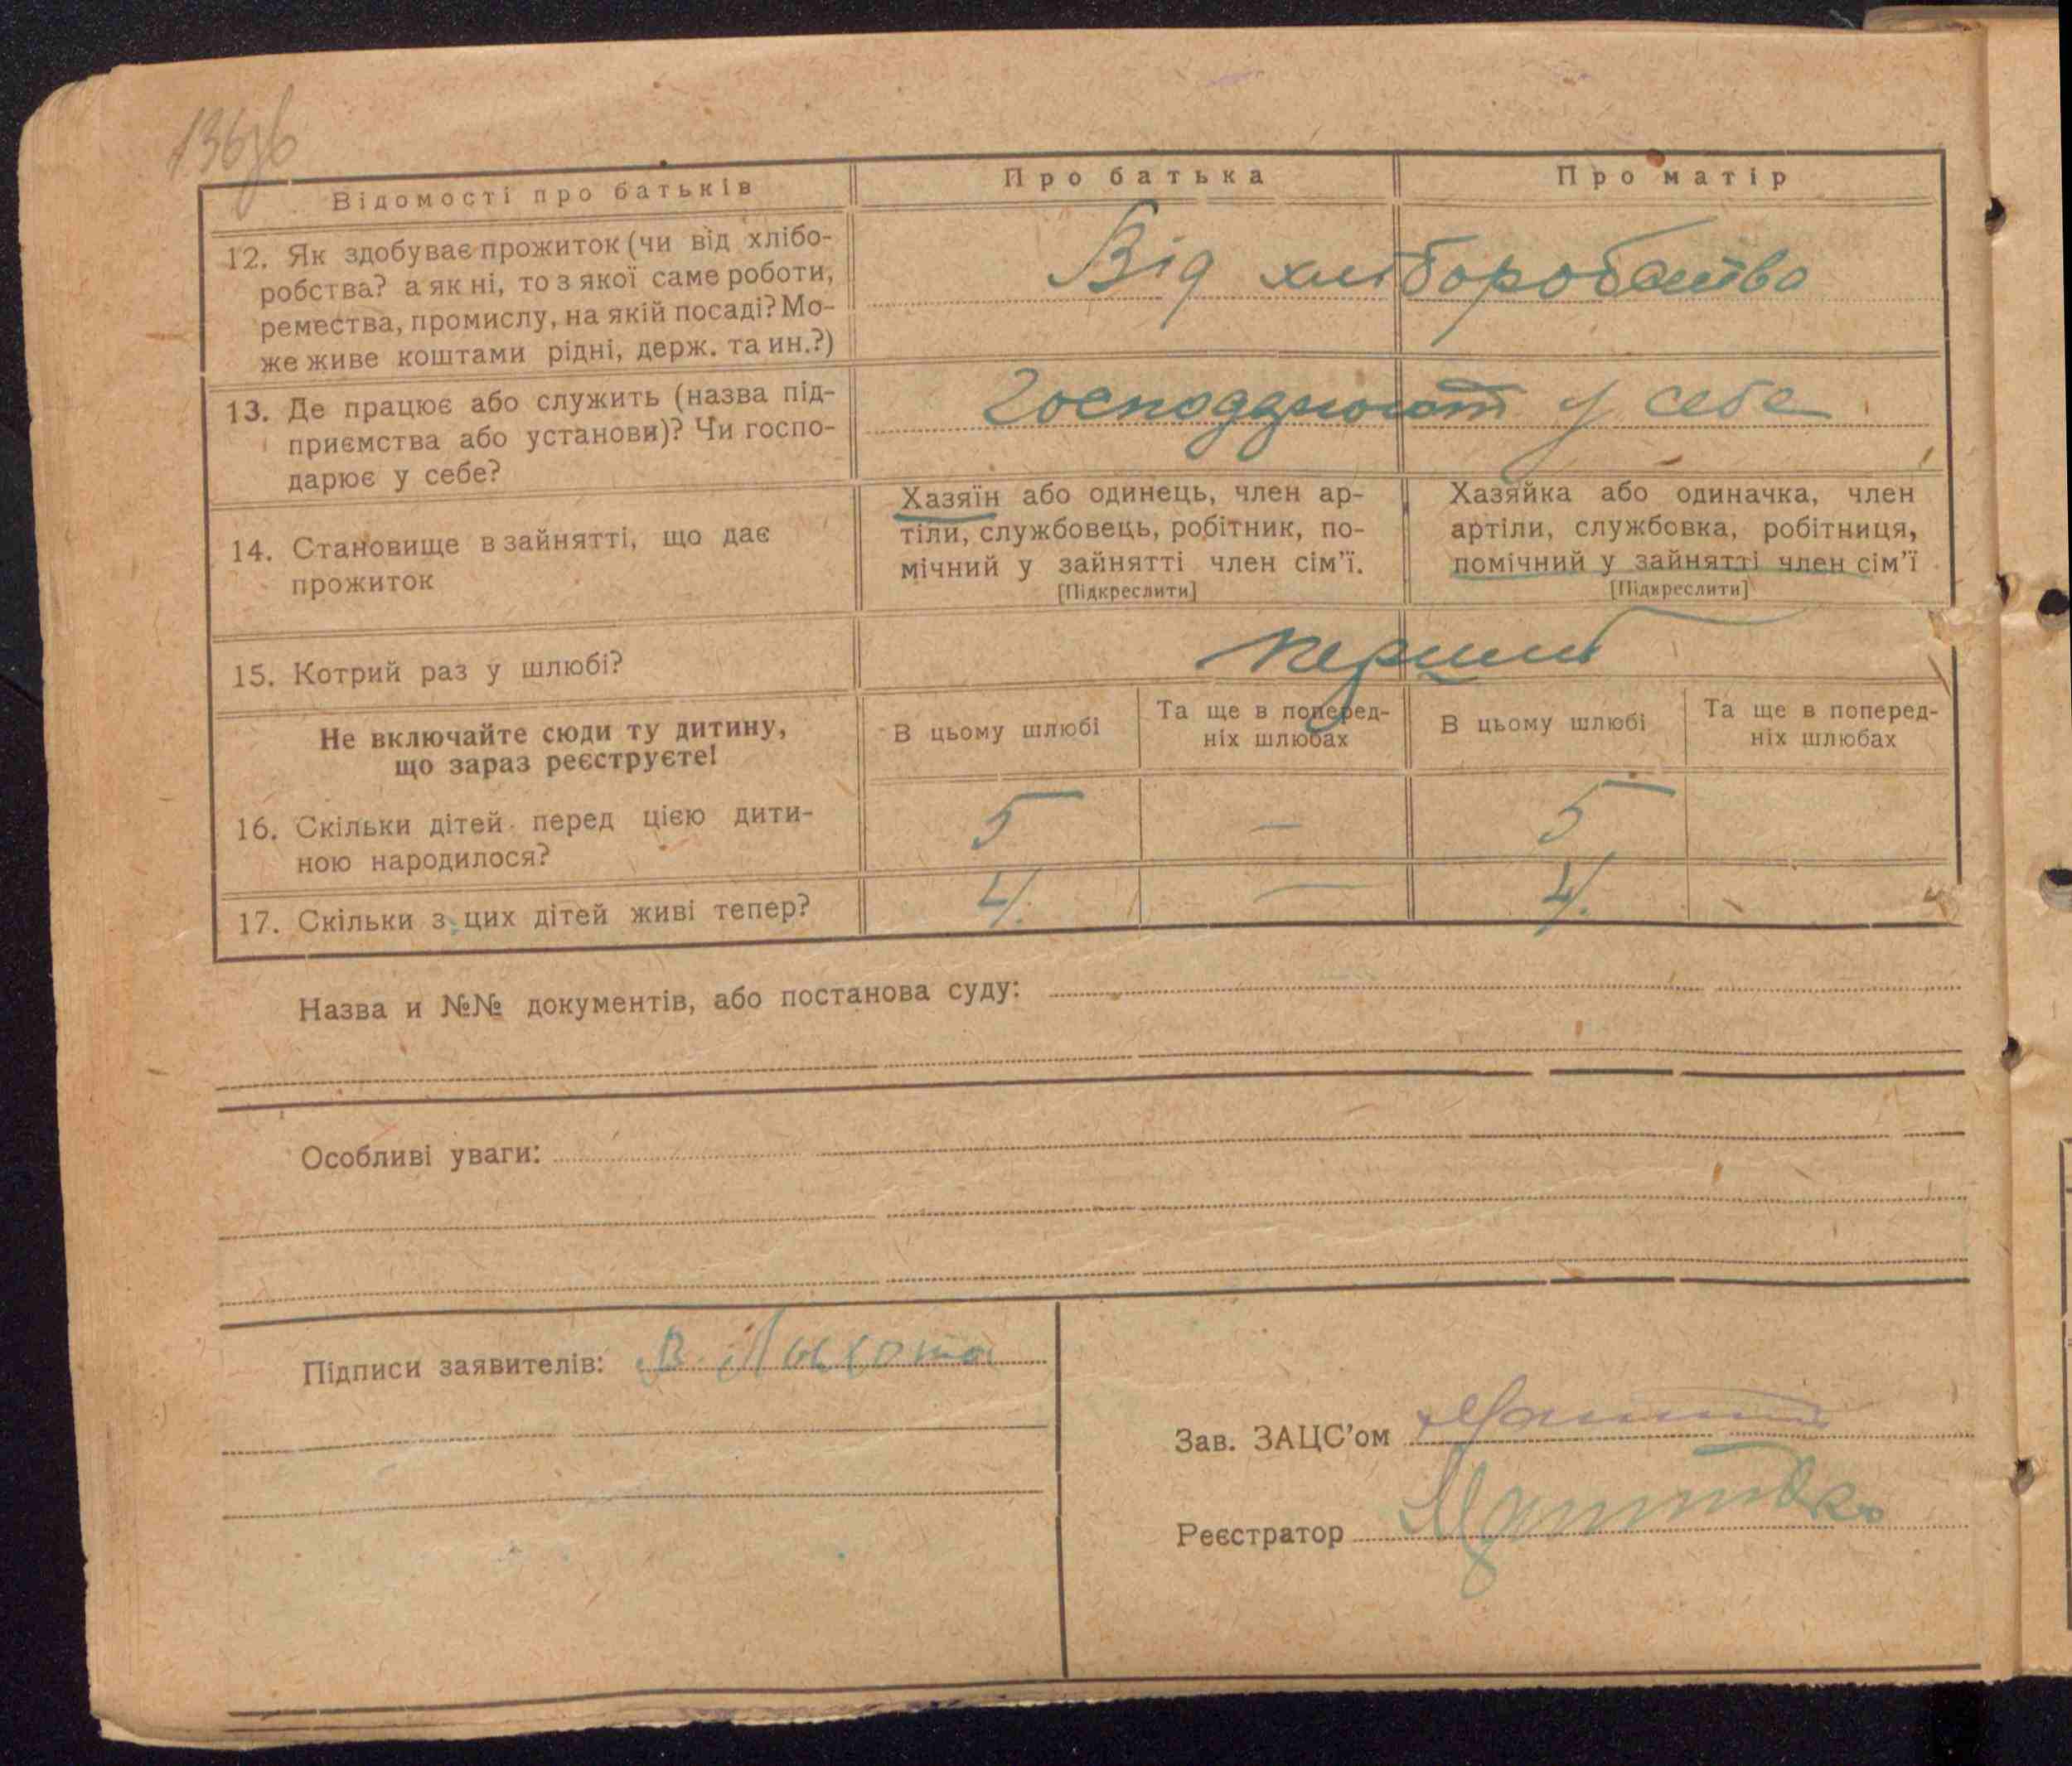 136зб
Відомості про батьків
Про батька
Про матір
12. Як здобуває прожиток (чи від хлібо-
робства? а як ні, то з якої саме роботи,
ремества, промислу, на якій посаді? Мо-
же живе коштами рідні, держ. та ин.?)
Від хліборобства
13. Де працює або служить (назва під-
приємства або установи)? Чи госпо-
дарює у себе?
у себе
14. Становище в зайнятті, що дає
прожиток
Хазяїн або одинець, член ар-
тіли, службовець, робітник, по-
мічний у зайнятті член сім'ї.
[Підкреслити]
Хазяйка або одиначка, член
артіли, службовка, робітниця,
помічний у зайнятті член сім'ї
[Підкреслити]
15. Котрий раз у шлюбі?
перший
Не включайте сюди ту дитину,
що зараз реєструєте!
В цьому шлюбі
Та ще в поперед-
ніх шлюбах
В цьому шлюбі
Та ще в поперед-
ніх шлюбах
16. Скільки дітей перед цією дити-
ною народилося?
5 — 5
17. Скільки з цих дітей живі тепер?
4. — 4.
Назва и №№ документів, або постанова суду:
Особливі уваги:
Підписи заявителів:
Зав. ЗАЦС'ом
Реєстратор